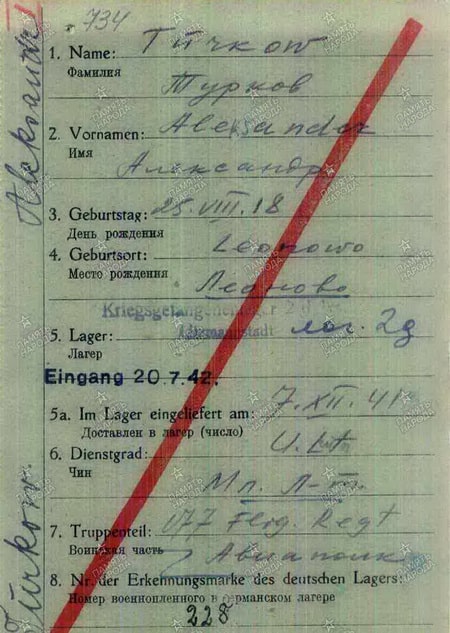 734
1. Name: Türkow
Фамилия
Турков
2. Vornamen: Aleksander
Имя
Александр
3. Geburtstag: 25.VIII.18
День рождения
4. Geburtsort: Leonowo
Место рождения
Леоново
Kriegsgefangenenlager 2
5. Lager: лаг. 2д
Лагер
Eingang 20.7.42.
5a. Im Lager eingeliefert am: 7.XII.41
Доставлен в лагер (число)
6. Dienstgrad: U. Ltn
Чин
Мл. Л-т.
7. Truppenteil: 177 Flieg. Regt
Воинская часть Авиаполк
8. Nr. der Erkennungsmarke des deutschen Lagers:
Номер военнопленного в германском лагере
228
Türkow. Aleksander